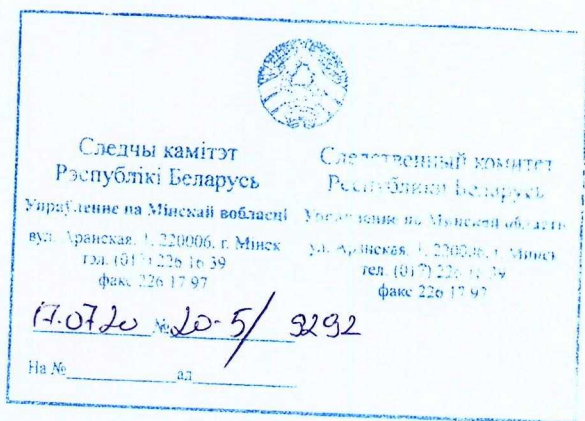 Следчы камітэт
Рэспублікі Беларусь
Упраўленне па Мінскай вобласці
вул. Аранская, 1, 220006, г. Минск
тэл. (017) 226 16 39
факс 226 17 97
Следственный комитет
Республики Беларусь
Управление по Минской области
ул. Аранская, 1, 220006, г. Минск
тел. (017) 226 16 39
факс 226 17 97
17.07.20 № 20-5/ 9292
На № ад